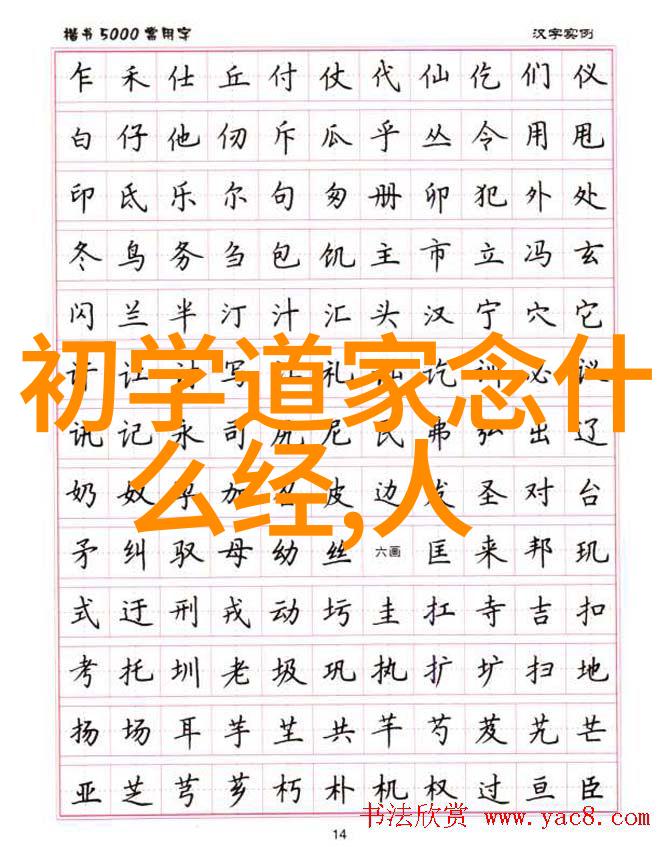 楷书5000常用字 汉字实例
乍 禾 仕 丘 付 仗 代 仙 仡 们 仪
白 仔 他 仞 斥 瓜 乎 丛 令 用 甩
印 氐 乐 尔 句 匆 册 卯 犯 外 处
冬 鸟 务 刍 包 饥 主 市 立 冯 玄
闪 兰 半 汀 汁 汇 头 汉 宁 穴 它
让 写 礼 讫 训 必 议
初学道家念什
讯 记 永 司 尻 尼 民 弗 弘 出 辽
么经,人
奶 奴 孕 加 皮 边 发 圣 对 台
矛 纠 驭 母 幼 丝 六画 匡 来 邦 玑
式 迂 刑 戎 动 圬 圭 扛 寺 吉 扣
考 托 圳 老 圾 巩 执 扩 圹 扫 地
扬 场 耳 芋 芏 共 芊 芍 芨 艽 芒
亚 芝 芎 芗 朽 朴 机 权 过 亘 臣
书法欣赏 www.yac8.com
14